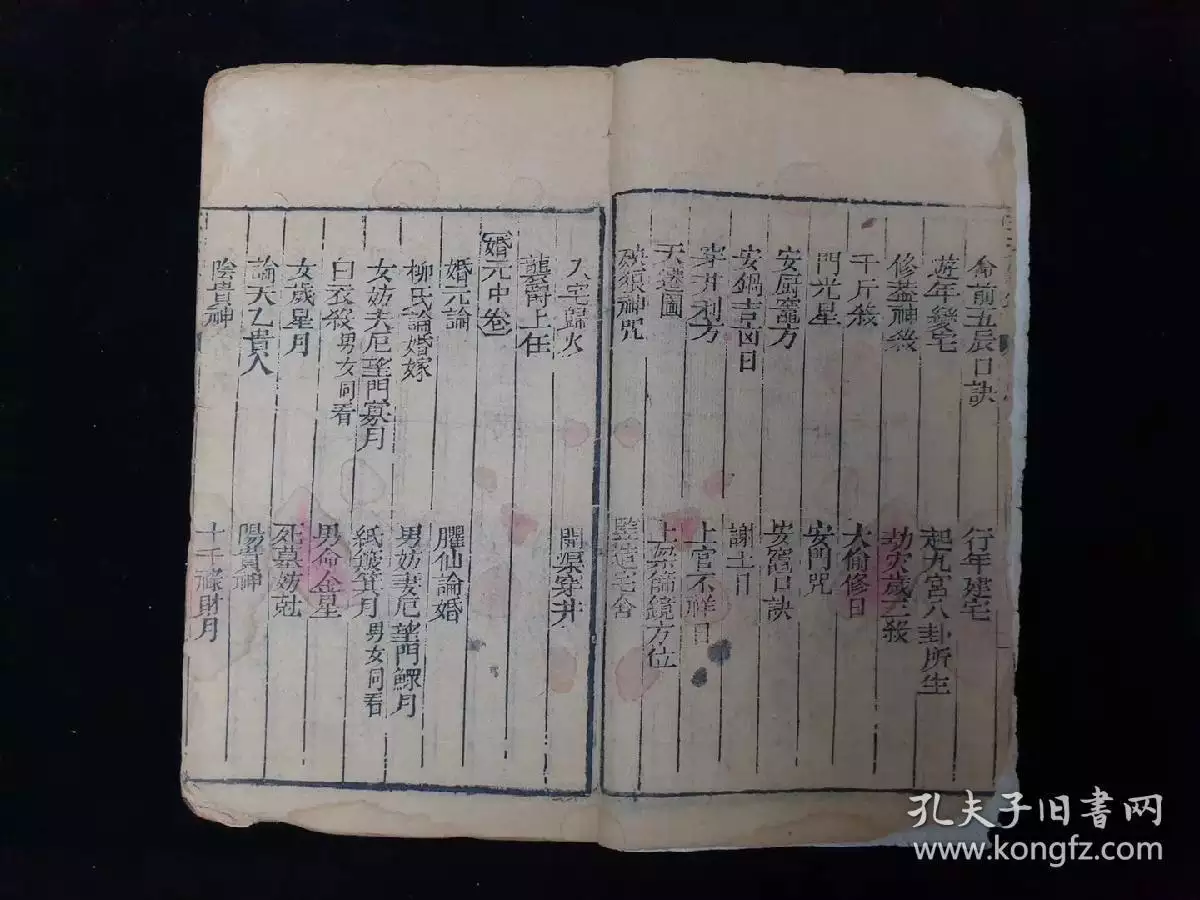 命前五辰口訣 行年建宅
遊年變宅 起九宮八卦所生
修葢神殺 劫灾歲三殺
千斤殺 大偷修日
門光星 安門咒
安厨竈方 安窻口訣
安鍋吉凶日 謝土日
穿井利方 上官不祥日
天遷圖 上梁篩鏡方位
神咒 監造宅舍
入宅歸火 開渠穿井
襲爵上任
婚元中卷
婚元論 臞仙論婚
柳氏論婚嫁 男妨妻厄望門鰥月
女妨夫厄望門寡月 紙簸箕月男女同看
白衣殺男女同看 男命金星
女歲星月 死墓妨尅
論天乙貴人 陽貴神
陰貴神 十干祿財月
孔夫子旧书网
www.kongfz.com